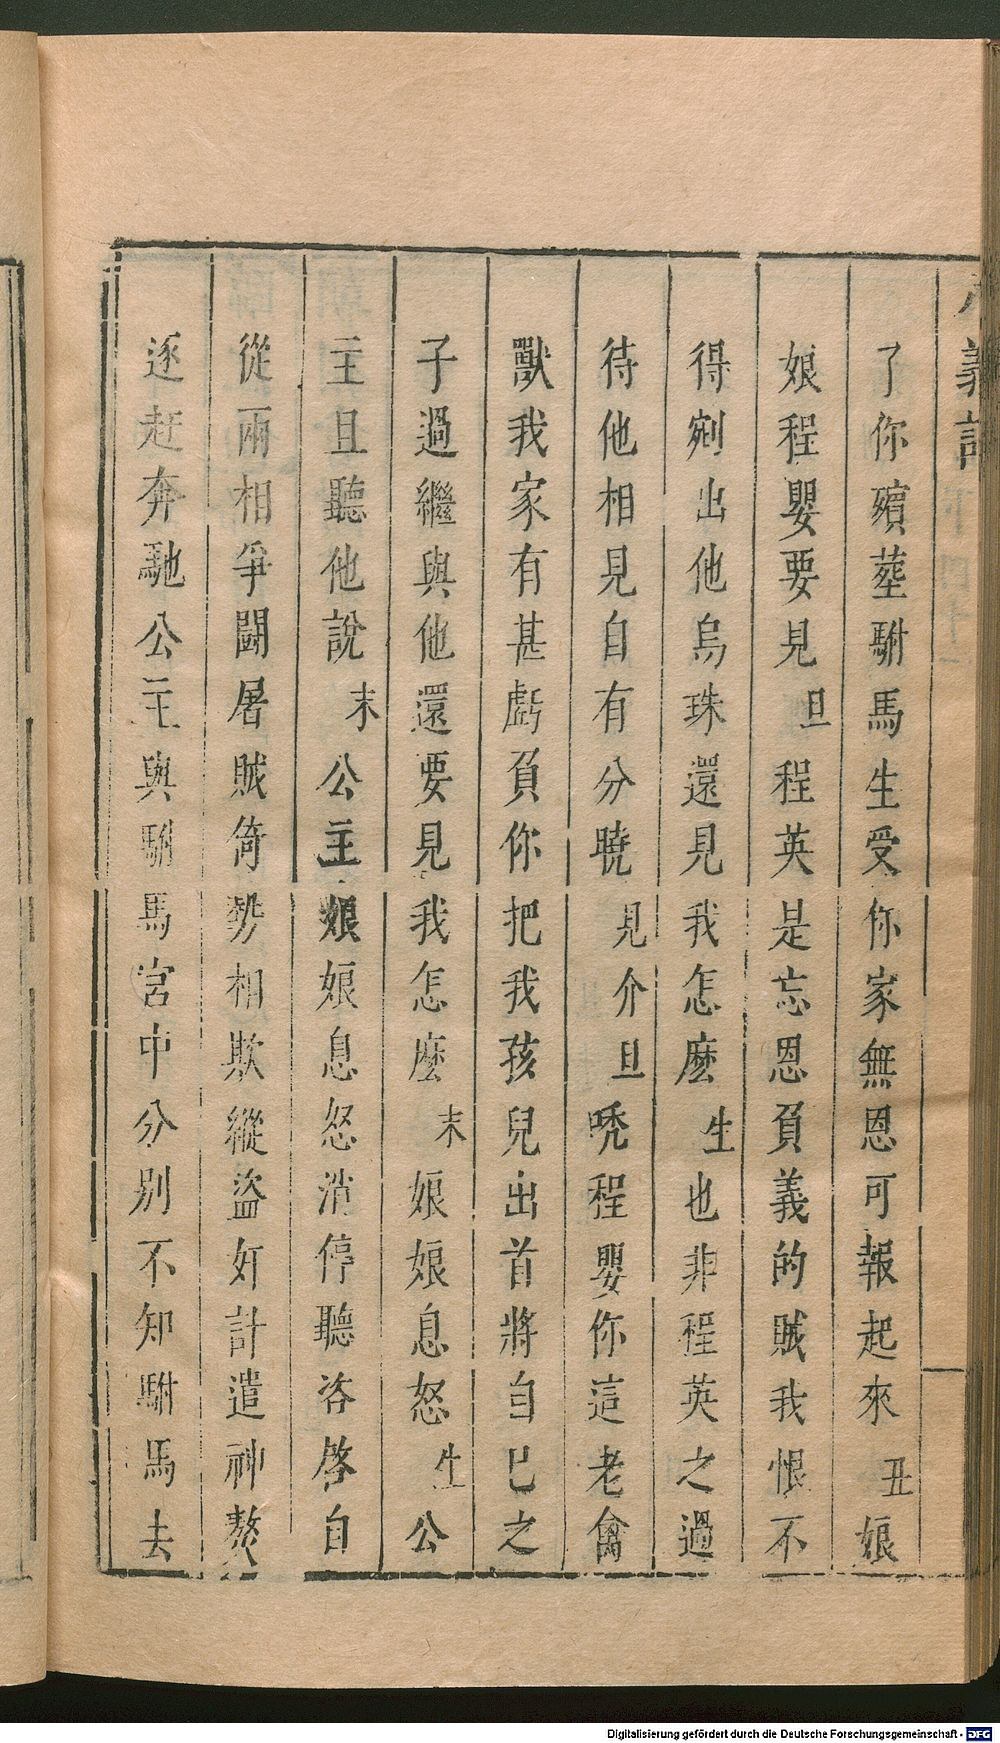 義記
了你殯葬駙馬生受你家無恩可報起來丑娘
娘程嬰要見旦程英是忘恩負義的賊我恨不
得剜出他烏珠還見我怎麽生也非程英之過
待他相見自有分曉見介旦唗程嬰你這老禽
獸我家有甚虧負你把我孩兒出首將自己之
子過繼與他還要見我怎麽末娘娘息怒生公
主且聽他說末公主娘娘息怒消停聽咨啓自
從兩相爭鬪屠賊倚勢相欺縱盜奸計遣神獒
逐赶奔馳公主與駙馬宮中分別不知駙馬去
Digitalisierung gefördert durch die Deutsche Forschungsgemeinschaft - DFG